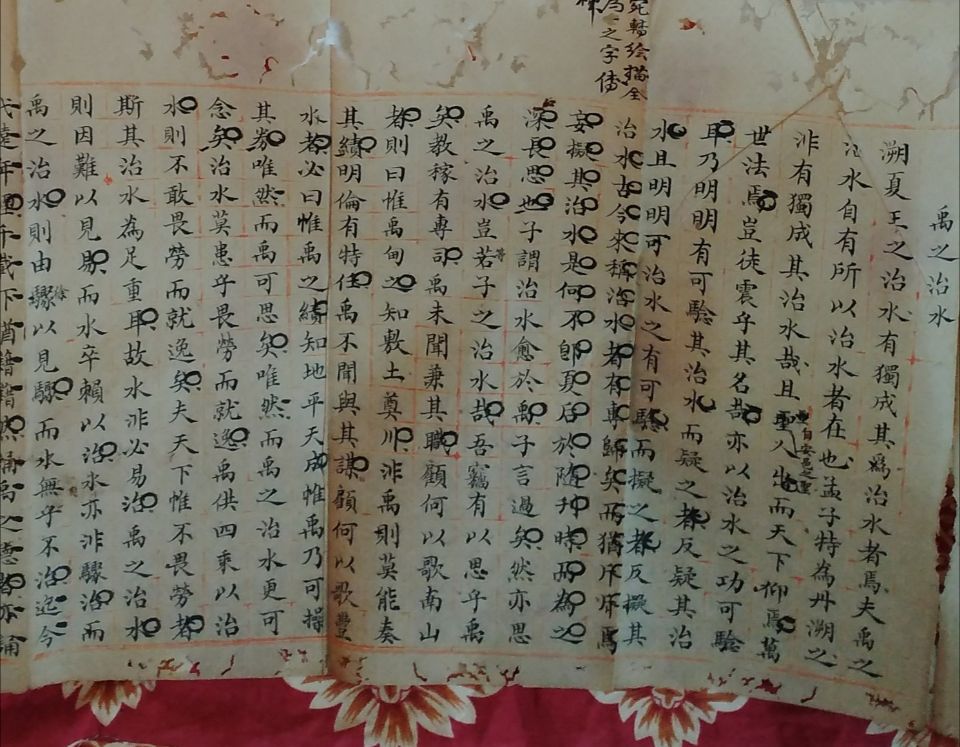 禹之治水
溯夏王之治水有獨成其為治水者焉夫禹之
治水自有所以治水者在也孟子特為丹溯之
非有獨成其治水哉且聖人出而天下仰焉萬
世法焉豈徒震乎其名哉亦以治水之功可驗
耳乃明明有可驗其治水而疑之者反疑其治
水且明明可治水之有可驗而擬之者反擬其
治水古今來稱治水者有專歸矣而猶斤斤焉
妄擬其治水是何不即夏后於隨刊時而為之
深長思也子謂治水愈於禹子言過矣然亦思
禹之治水豈若子之治水哉吾竊有以思乎禹
矣教稼有專司禹未聞兼其職顧何以歌南山
者則曰惟禹甸之知敷土奠川非禹則莫能奏
其績明倫有特任禹不聞與其謀顧何以歌豐
水者必曰惟禹之績知地平天成惟禹乃可操
其券唯然而禹可思矣唯然而禹之治水更可
念矣治水莫患乎畏勞而就逸禹供四乘以治
水則不敢畏勞而就逸矣夫天下惟不畏勞者
斯其治水為足重耳故水非必易治禹之治水
則因難以見易而水卒賴以治水亦非驟治而
禹之治水則由徐以見驟而水無乎不治迄今
代遠年
千載下
禹之
宛轉繪描全
為一之字傳
神